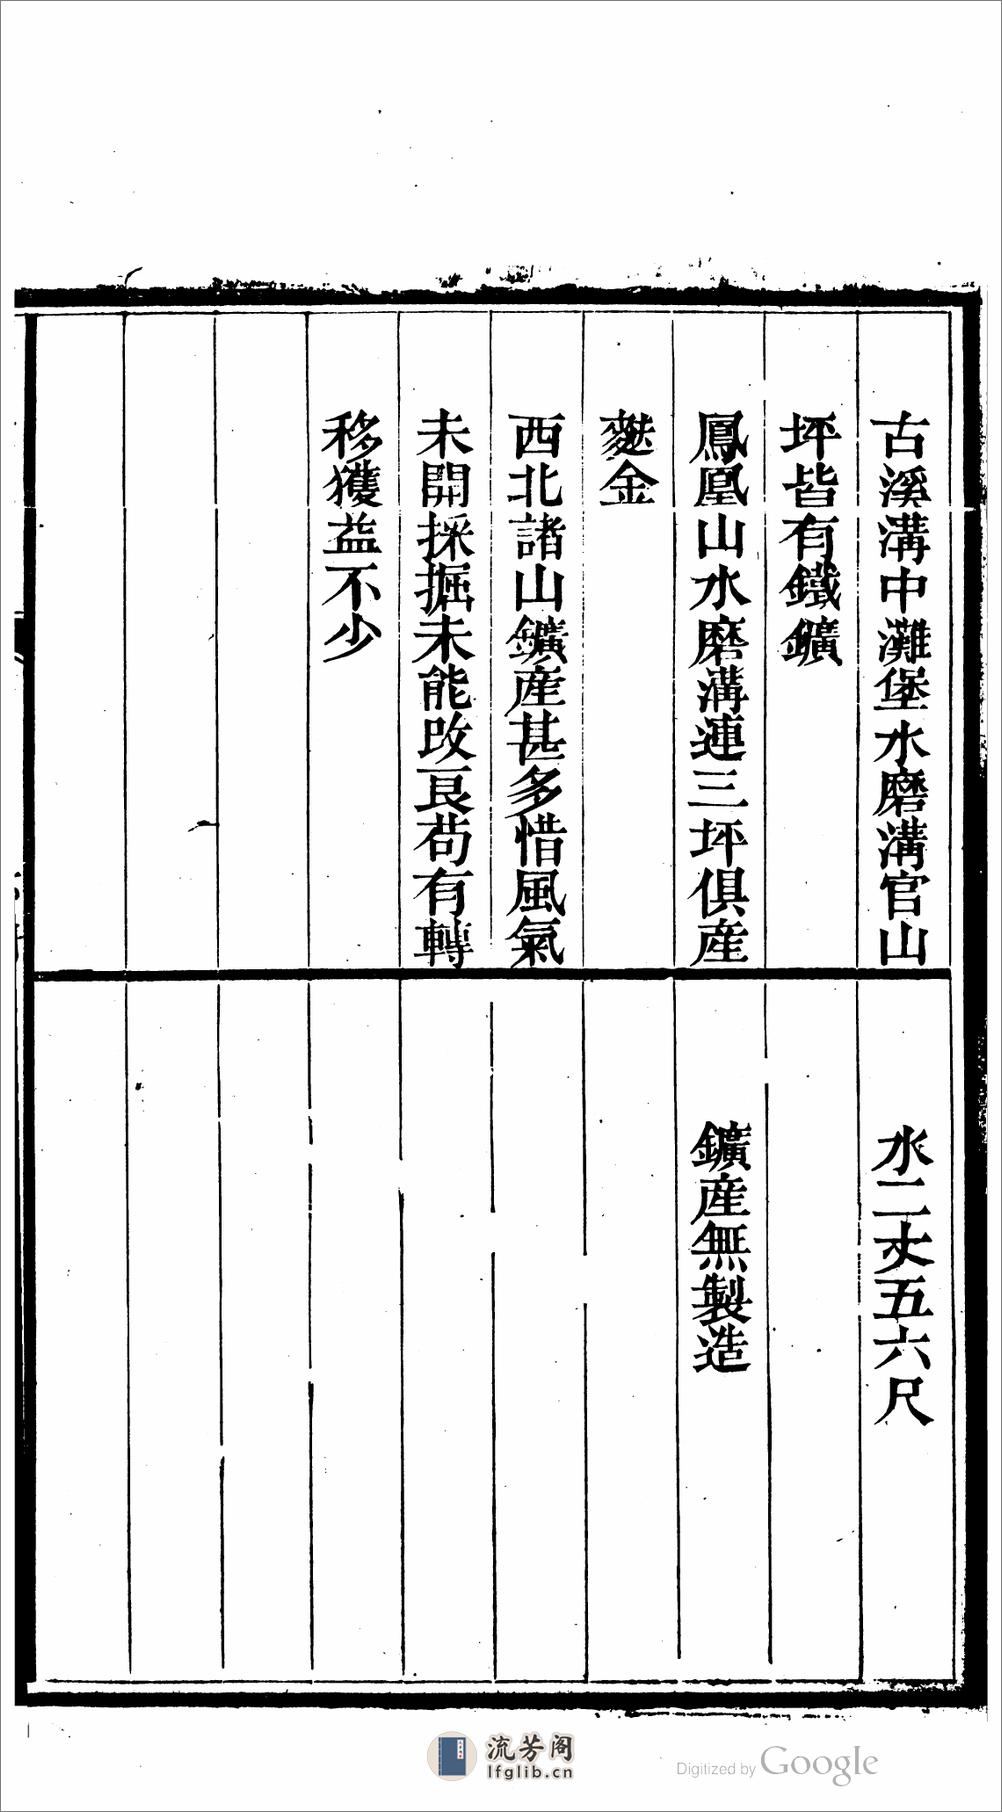 古溪溝中灘堡水磨溝官山
坪皆有鐵鑛
鳳凰山水磨溝連三坪俱産
麩金
西北諸山鑛産甚多惜風氣
未開採掘未能改良苟有轉
移獲益不少
水二丈五六尺
鑛産無製造
流芳阁
lfglib.cn
Digitized by Google